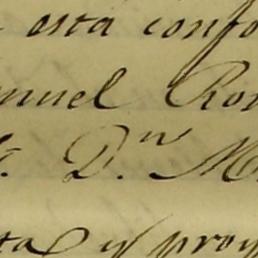 está confo
nuel Ro
Dn. M
ta y proy